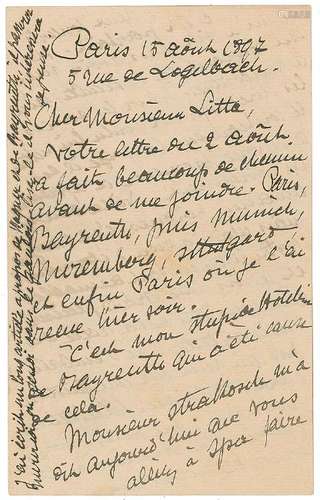 Paris 15 août 1897
5 rue de Logelbach.
Cher Monsieur Litta,
Votre lettre du 2 août
a fait beaucoup de chemin
avant de me joindre - Paris,
Bayreuth, puis Munich,
Nuremberg, Stuttgard,
et enfin Paris où je l'ai
reçue hier soir.
C'est mon stupide hôtelier
de Bayreuth qui a été cause
de cela.
Monsieur Strakosch m'a
dit aujourd'hui que vous
alliez à Spa faire
J'ai écrit un long article à propos de Wagner et de Bayreuth, à peine